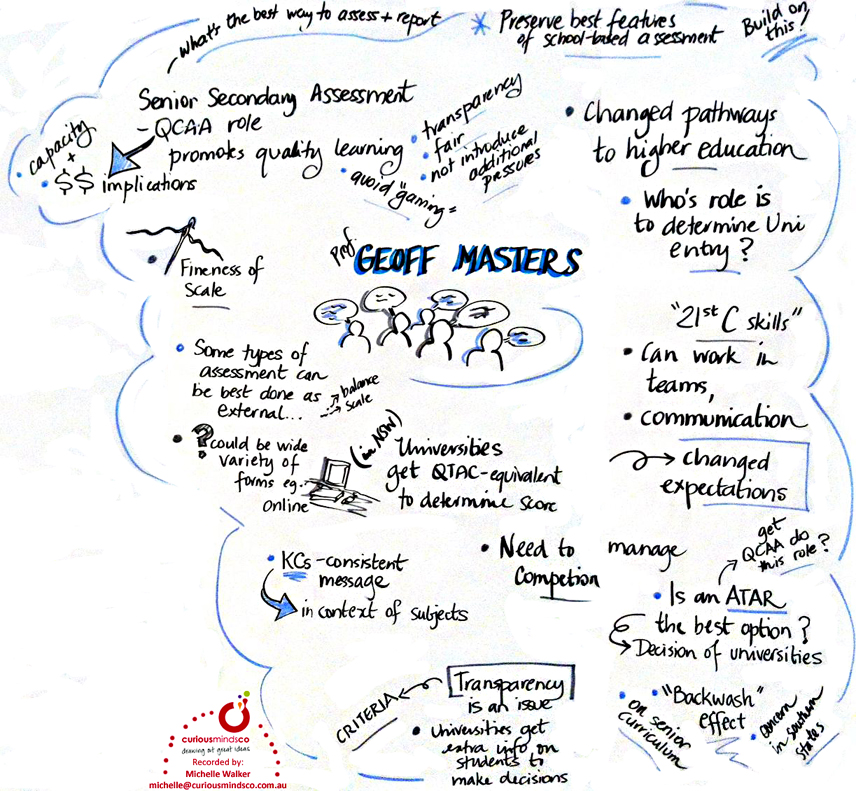 what's the best way to assess + report
* Preserve best features
of school-based assessment
Build on
this!
Senior Secondary Assessment
- QCAA role
promotes quality learning
• transparency
• fair
• not introduce
additional
pressures
• avoid "gaming =
capacity
+
• $$ implications
• Changed pathways
to higher education
• Who's role is
to determine Uni
entry?
• Fineness of
Scale
Prof. GEOFF MASTERS
"21st C skills"
• Can work in
teams,
• communication
changed
expectations
• Some types of
assessment can
be best done as
external...
balance
scale
• ? could be wide
variety of
forms eg.
online
(in NSW)
Universities
get QTAC-equivalent
to determine score
• KCs - consistent
message
in context of subjects
• Need to manage
Competion
get
QCAA do
this role?
• Is an ATAR
the best option?
Decision of universities
• "Backwash"
effect
on senior
curriculum
• concern
in southern
states
Transparency
is an issue
CRITERIA
• Universities get
extra info on
students to
make decisions
curiousmindsco
drawing at great ideas
Recorded by:
Michelle Walker
michelle@curiousmindsco.com.au